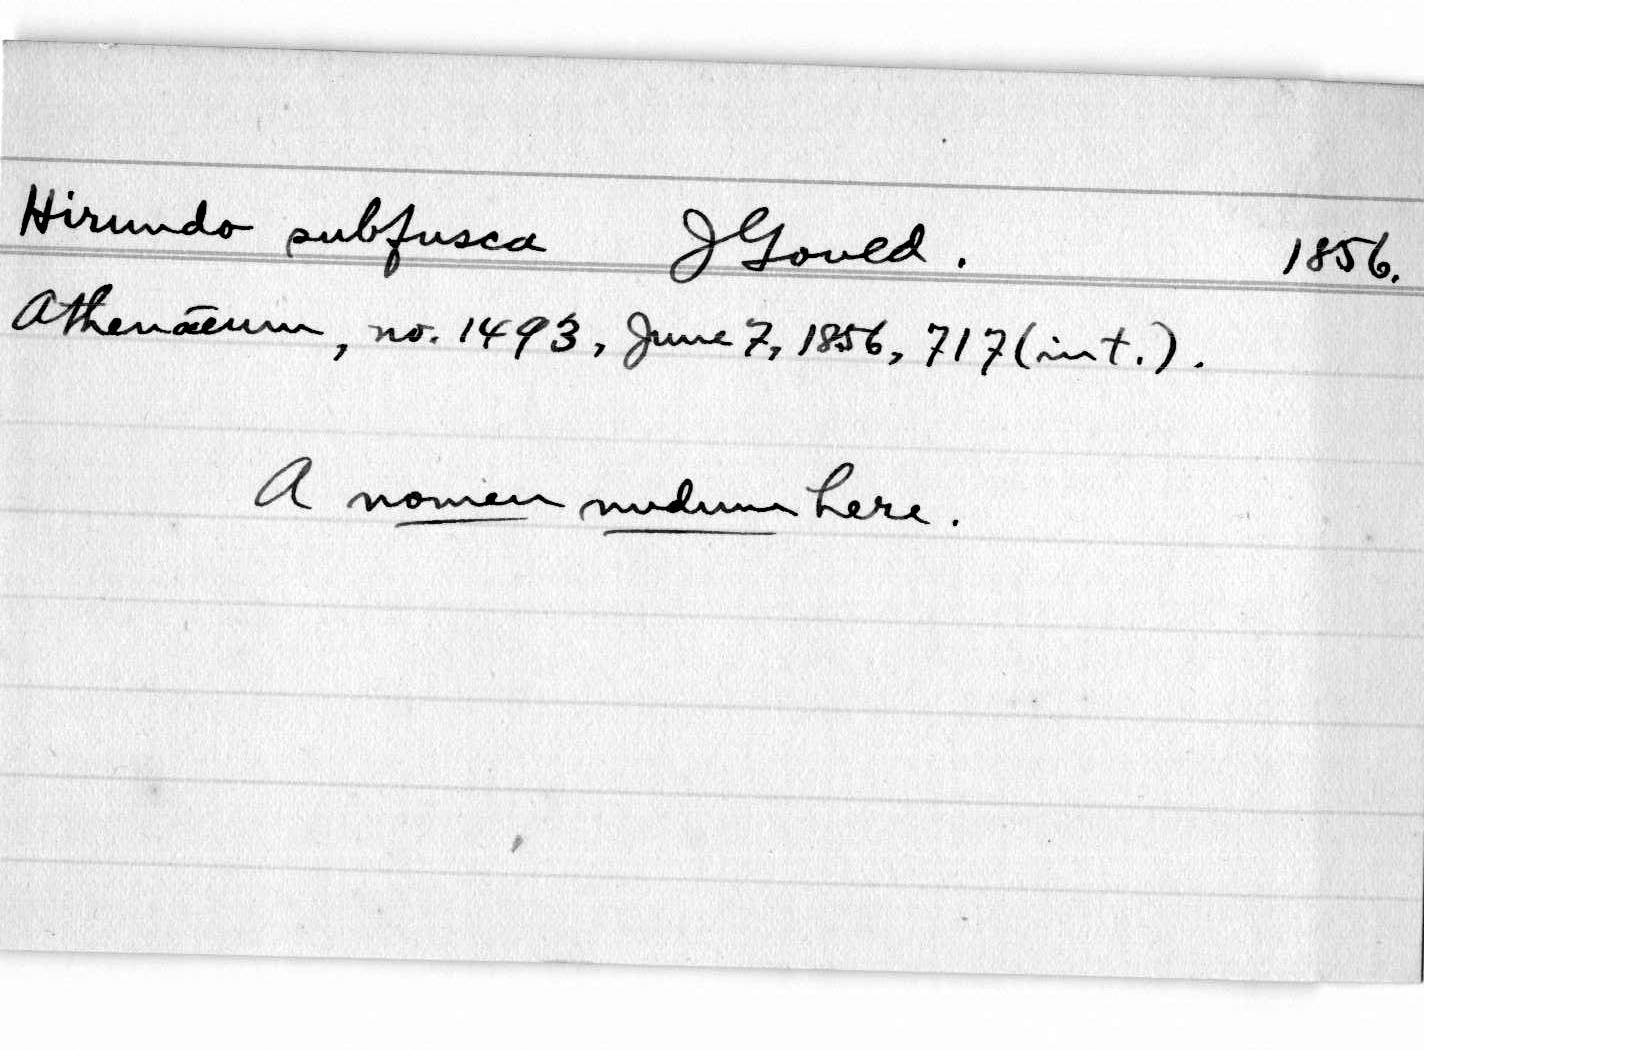 Hirundo subfusca JGould. 1856.
Athenaeum, no. 1493, June 7, 1856, 717 (int.).
A nomen nudum here.